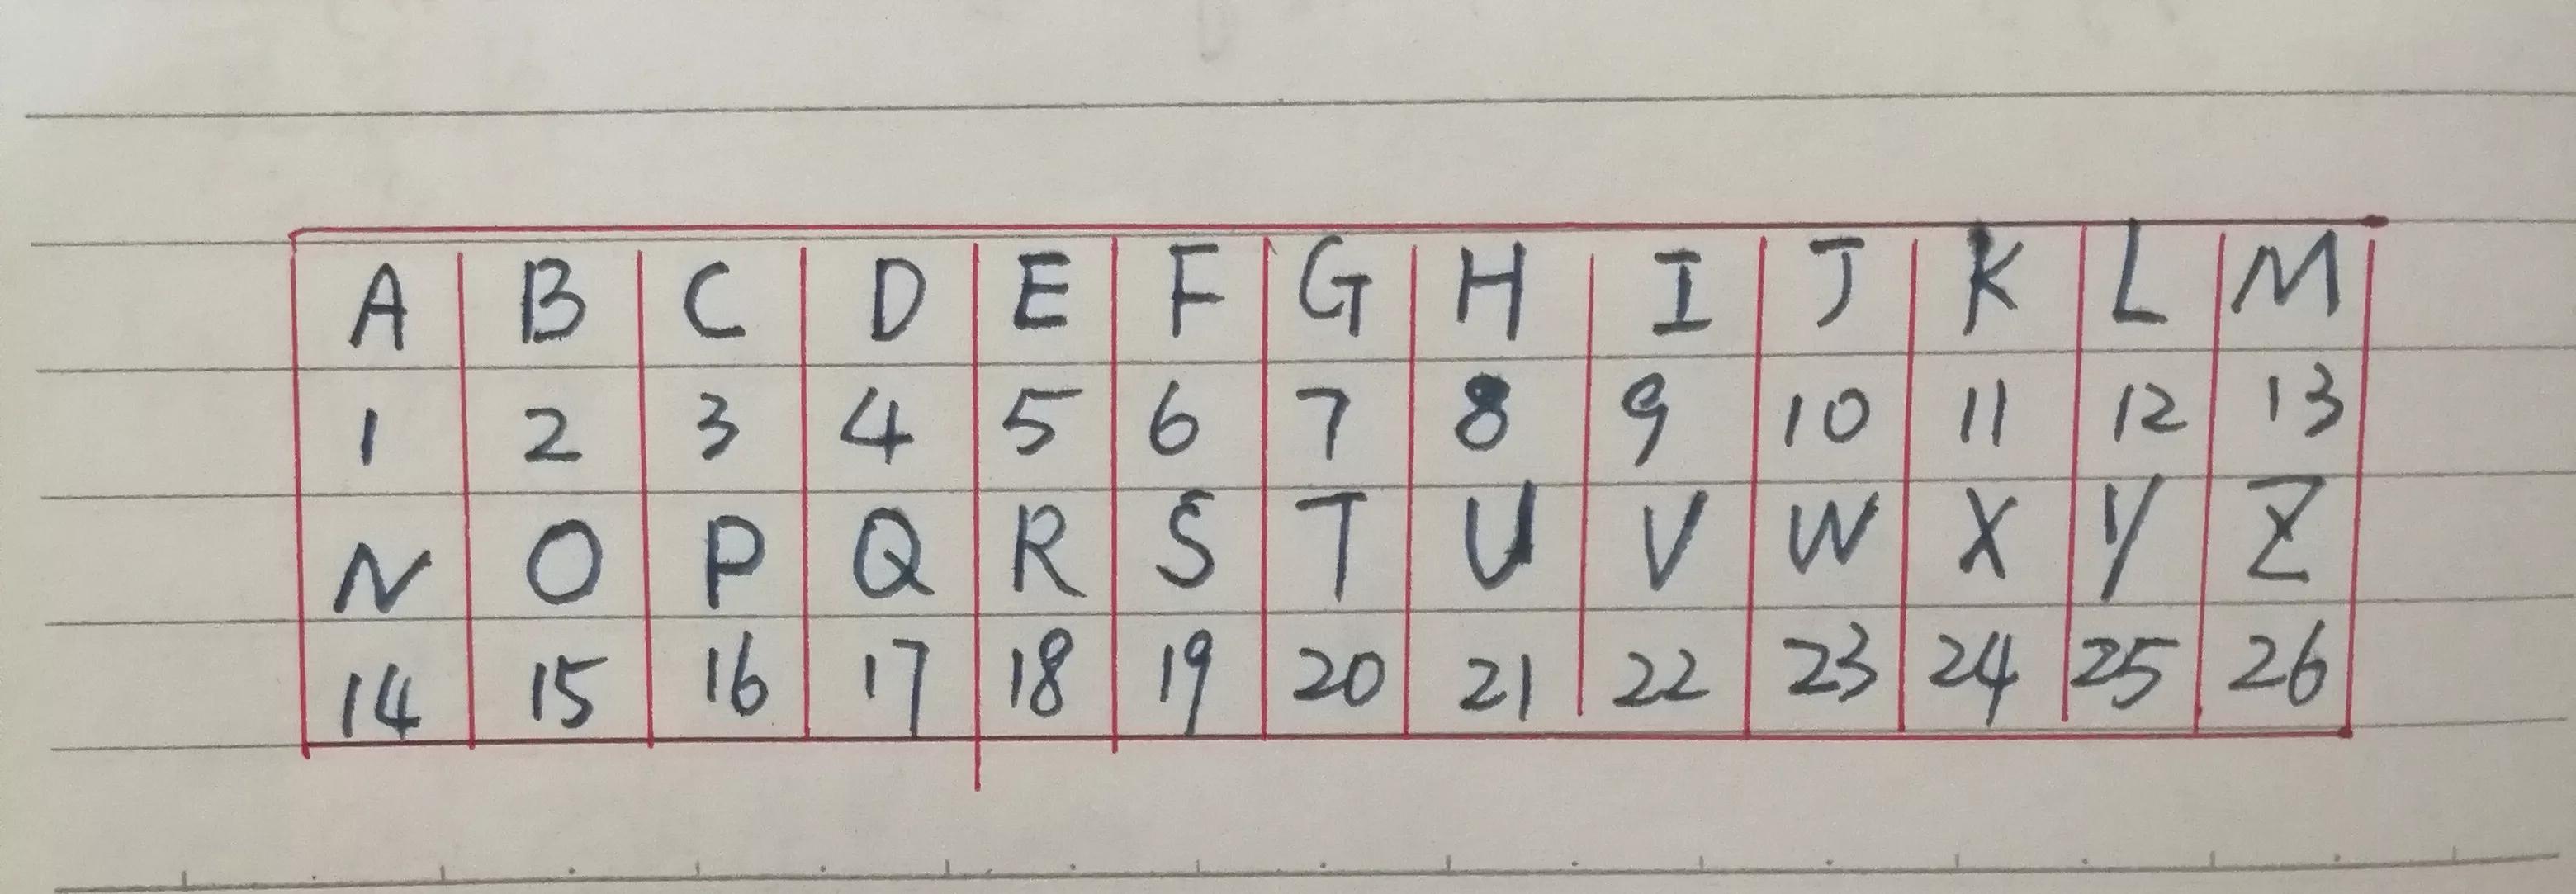 A B C D E F G H I J K L M
1 2 3 4 5 6 7 8 9 10 11 12 13
N O P Q R S T U V W X Y Z
14 15 16 17 18 19 20 21 22 23 24 25 26